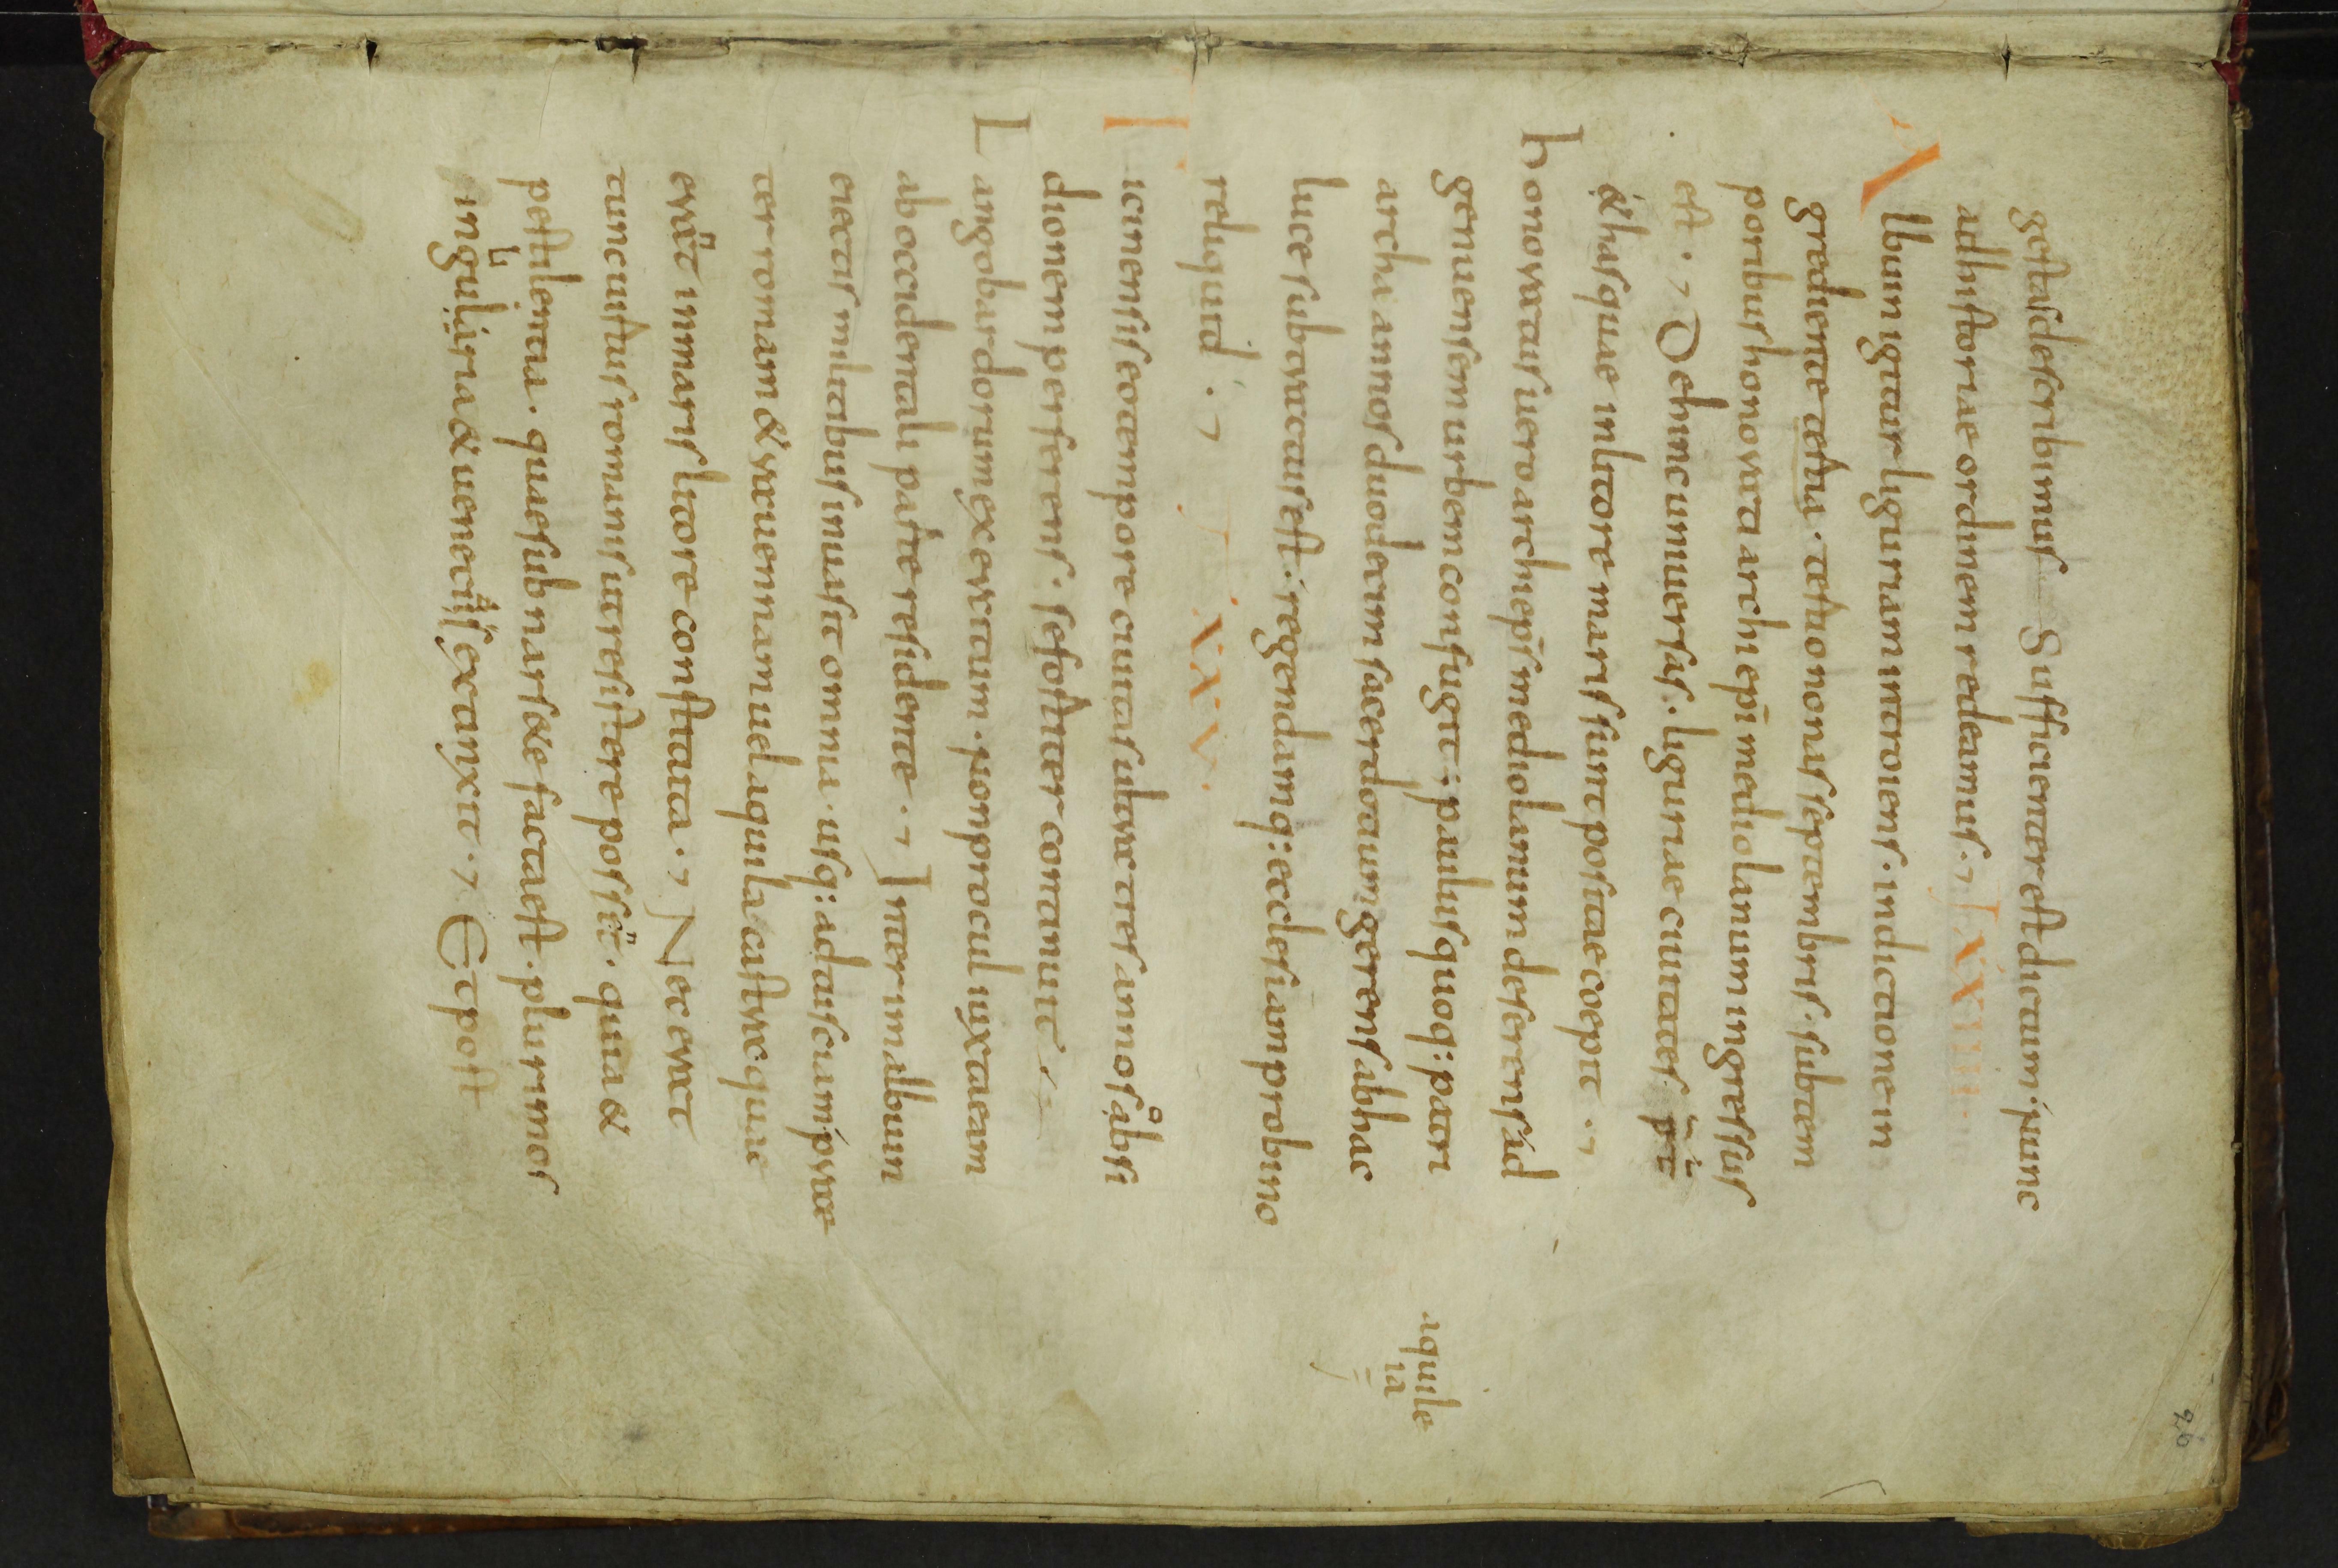 26
gestas describimus Sufficienter est dictum. nunc
ad historiae ordinem redeamus. XXIIII.
Albuin igitur liguriam introiens. indictione in
grediente tertia. tertio nonas septembris. sub tem
poribus honorata archiepi mediolanum ingressus
est. Dehinc uniuersas. liguriae ciuitates. pr̄t
& has quae in litore maris sunt positae coepit.
honoratus uero archieps mediolanum deserens ad
genuensem urbem confugit; paulus quoq: patri
archa annos duodecim sacerdotium gerens ab hac
luce subtractus est. regendamq: ecclesiam probino
aquile
ia
reliquid. XXV.
Ticinensis eo tempore ciuitas ultra tres annos ab si
dionem perferens. se fortiter contanuit
Langobardorum exercitum. non procul iuxta eam
ab occidentali parte residente. Interim albuin
eiectis militabus inuasit omnia. usq: ad tusciam prae
ter romam & rauennam uel aquila castra. quae
erant in maris litore constituta. Nec erat
tunc uirtus romanis ut resistere possent. quia &
pestilentia. quae sub narsete facta est. plurimos
in liguria & uenetiis extinxit. Et post